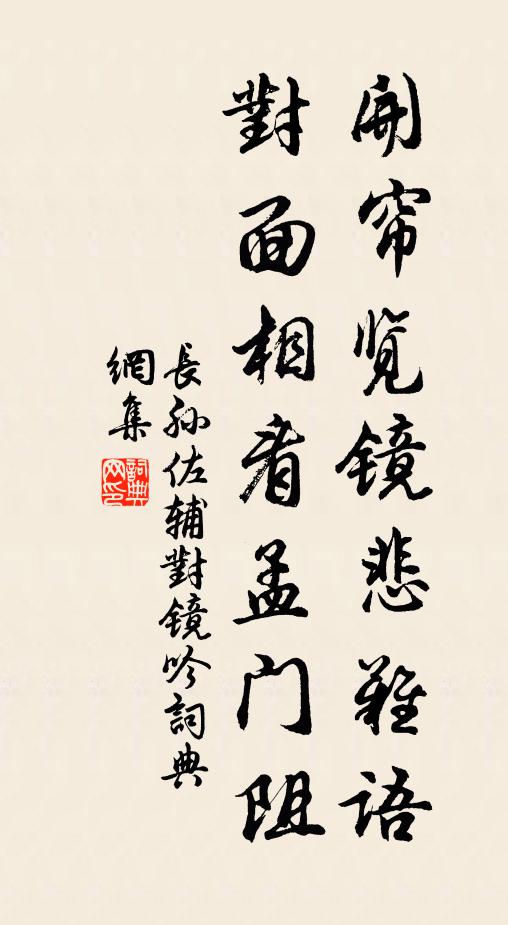 開帘览镜悲難语
對面相看孟门阻
長孙佐辅對镜吟詞典
網集
詞典
网印